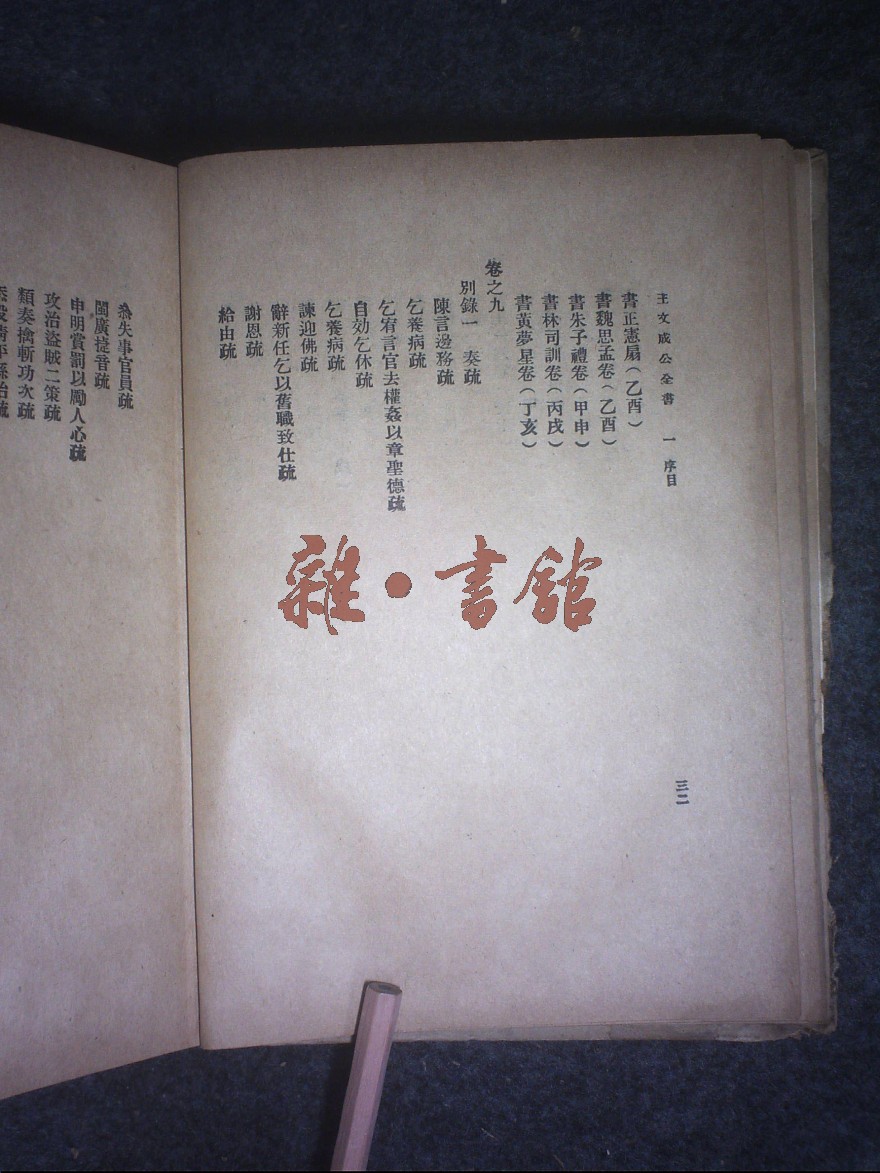 王文成公全書 一 序目
三二
書正憲扇(乙酉)
書魏思孟卷(乙酉)
書朱子禮卷(甲申)
書林司訓卷(丙戌)
書黃夢星卷(丁亥)
卷之九
別錄一 奏疏
陳言邊務疏
乞養病疏
乞宥言官去權姦以章聖德疏
自劾乞休疏
乞養病疏
諫迎佛疏
辭新任乞以舊職致仕疏
謝恩疏
給由疏
參失事官員疏
閩廣捷音疏
申明賞罰以勵人心疏
攻治盜賊二策疏
類奏擒斬功次疏
添設清平縣治疏
雜·書館